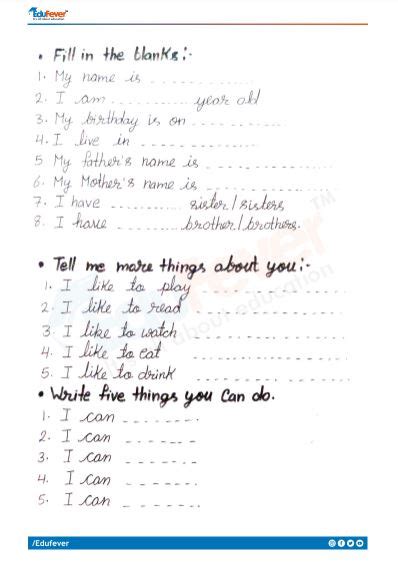 EduFever
It's all about education
• Fill in the blanks:-
1. My name is ............
2. I am ........... year old
3. My birthday is on ............
4. I live in ............
5 My father's name is ............
6. My Mother's name is ............
7. I have ........... sister/sisters
8. I have ........... brother/brothers.
• Tell me more things about you:-
1. I like to play ............
2. I like to read ............
3. I like to watch ............
4. I like to eat ............
5. I like to drink ............
• Write five things you Can do.
1. I can --------.
2. I can -------
3. I can -------
4. I can --------
5. I can --------.
EduFever TM
about education
/Edufever